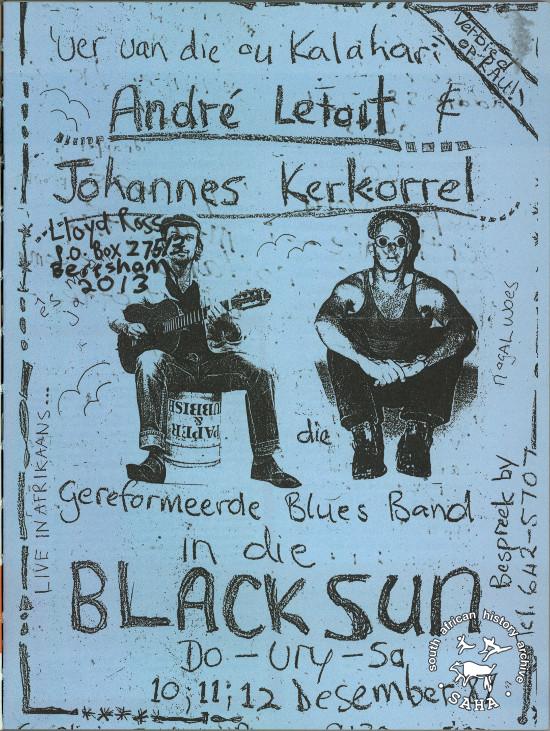 Ver van die ou Kalahari
Verbied op RAU!!
André Letoit &
Johannes Kerkorrel
Lloyd Ross
P.O. Box 27513
Bertsham
2013
PAPER
&
RUBBISH
nogal woes
LIVE IN AFRIKAANS...
die
Gereformeerde Blues Band
in die
BLACK SUN
Do - Vry - Sa
10; 11; 12 Desember
Bespreek by
tel. 642-5707
south african history archive
SAHA